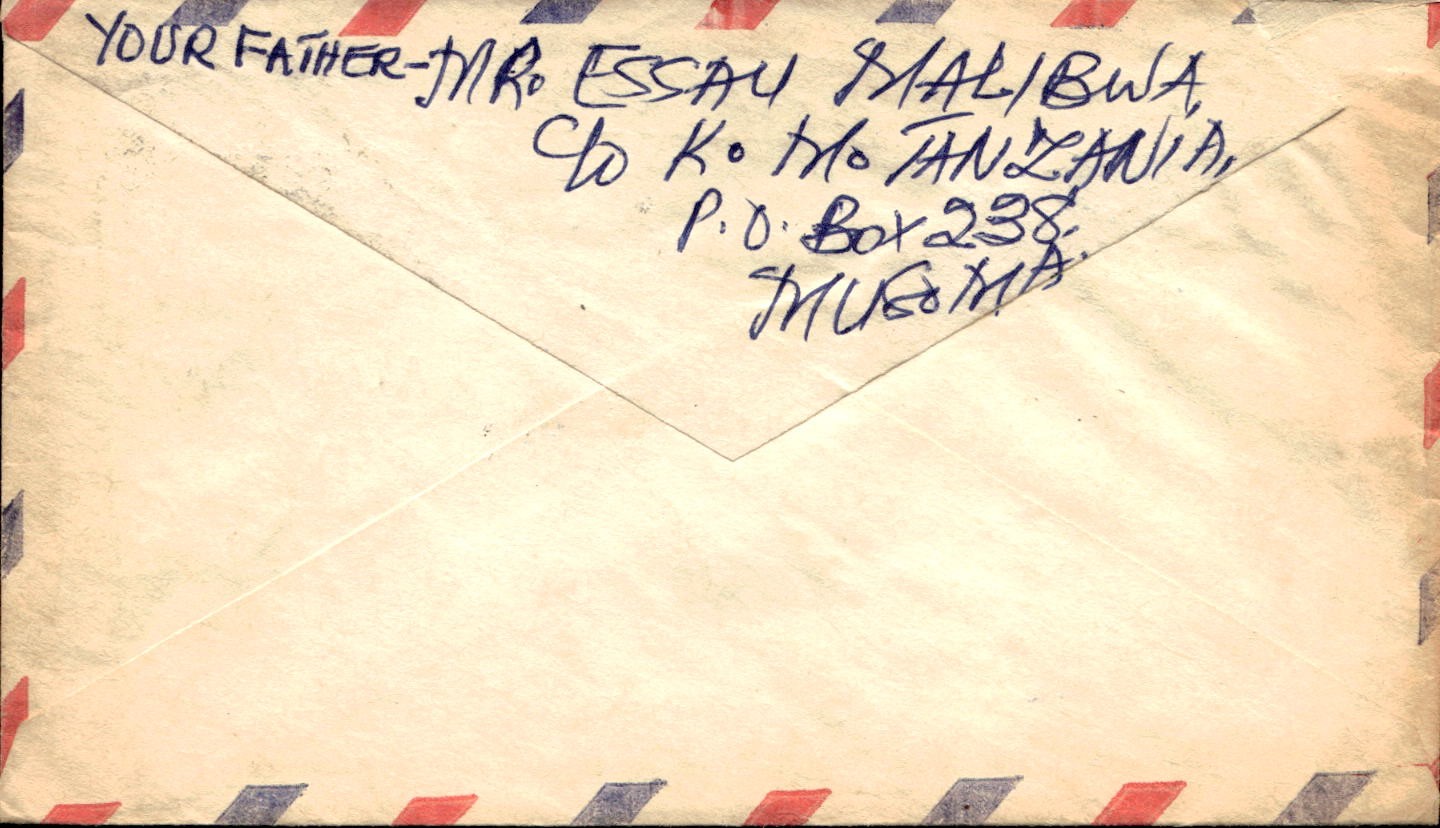 YOUR FATHER-MR. ESSAU MALIBWA
C/O K. M. TANZANIA.
P.O. BOX 238.
MUSOMA.